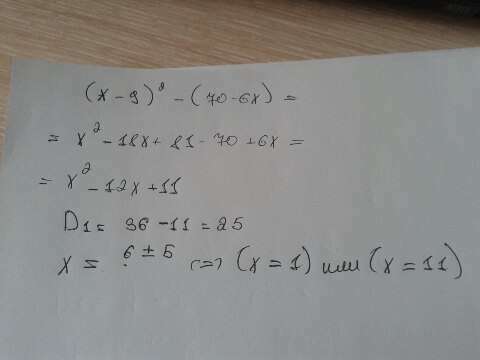 (x - 9)² - (70 - 6x) =
= x² - 18x + 81 - 70 + 6x =
= x² - 12x + 11
D1 = 36 - 11 = 25
x = 6 ± 5 <=> (x = 1) или (x = 11)